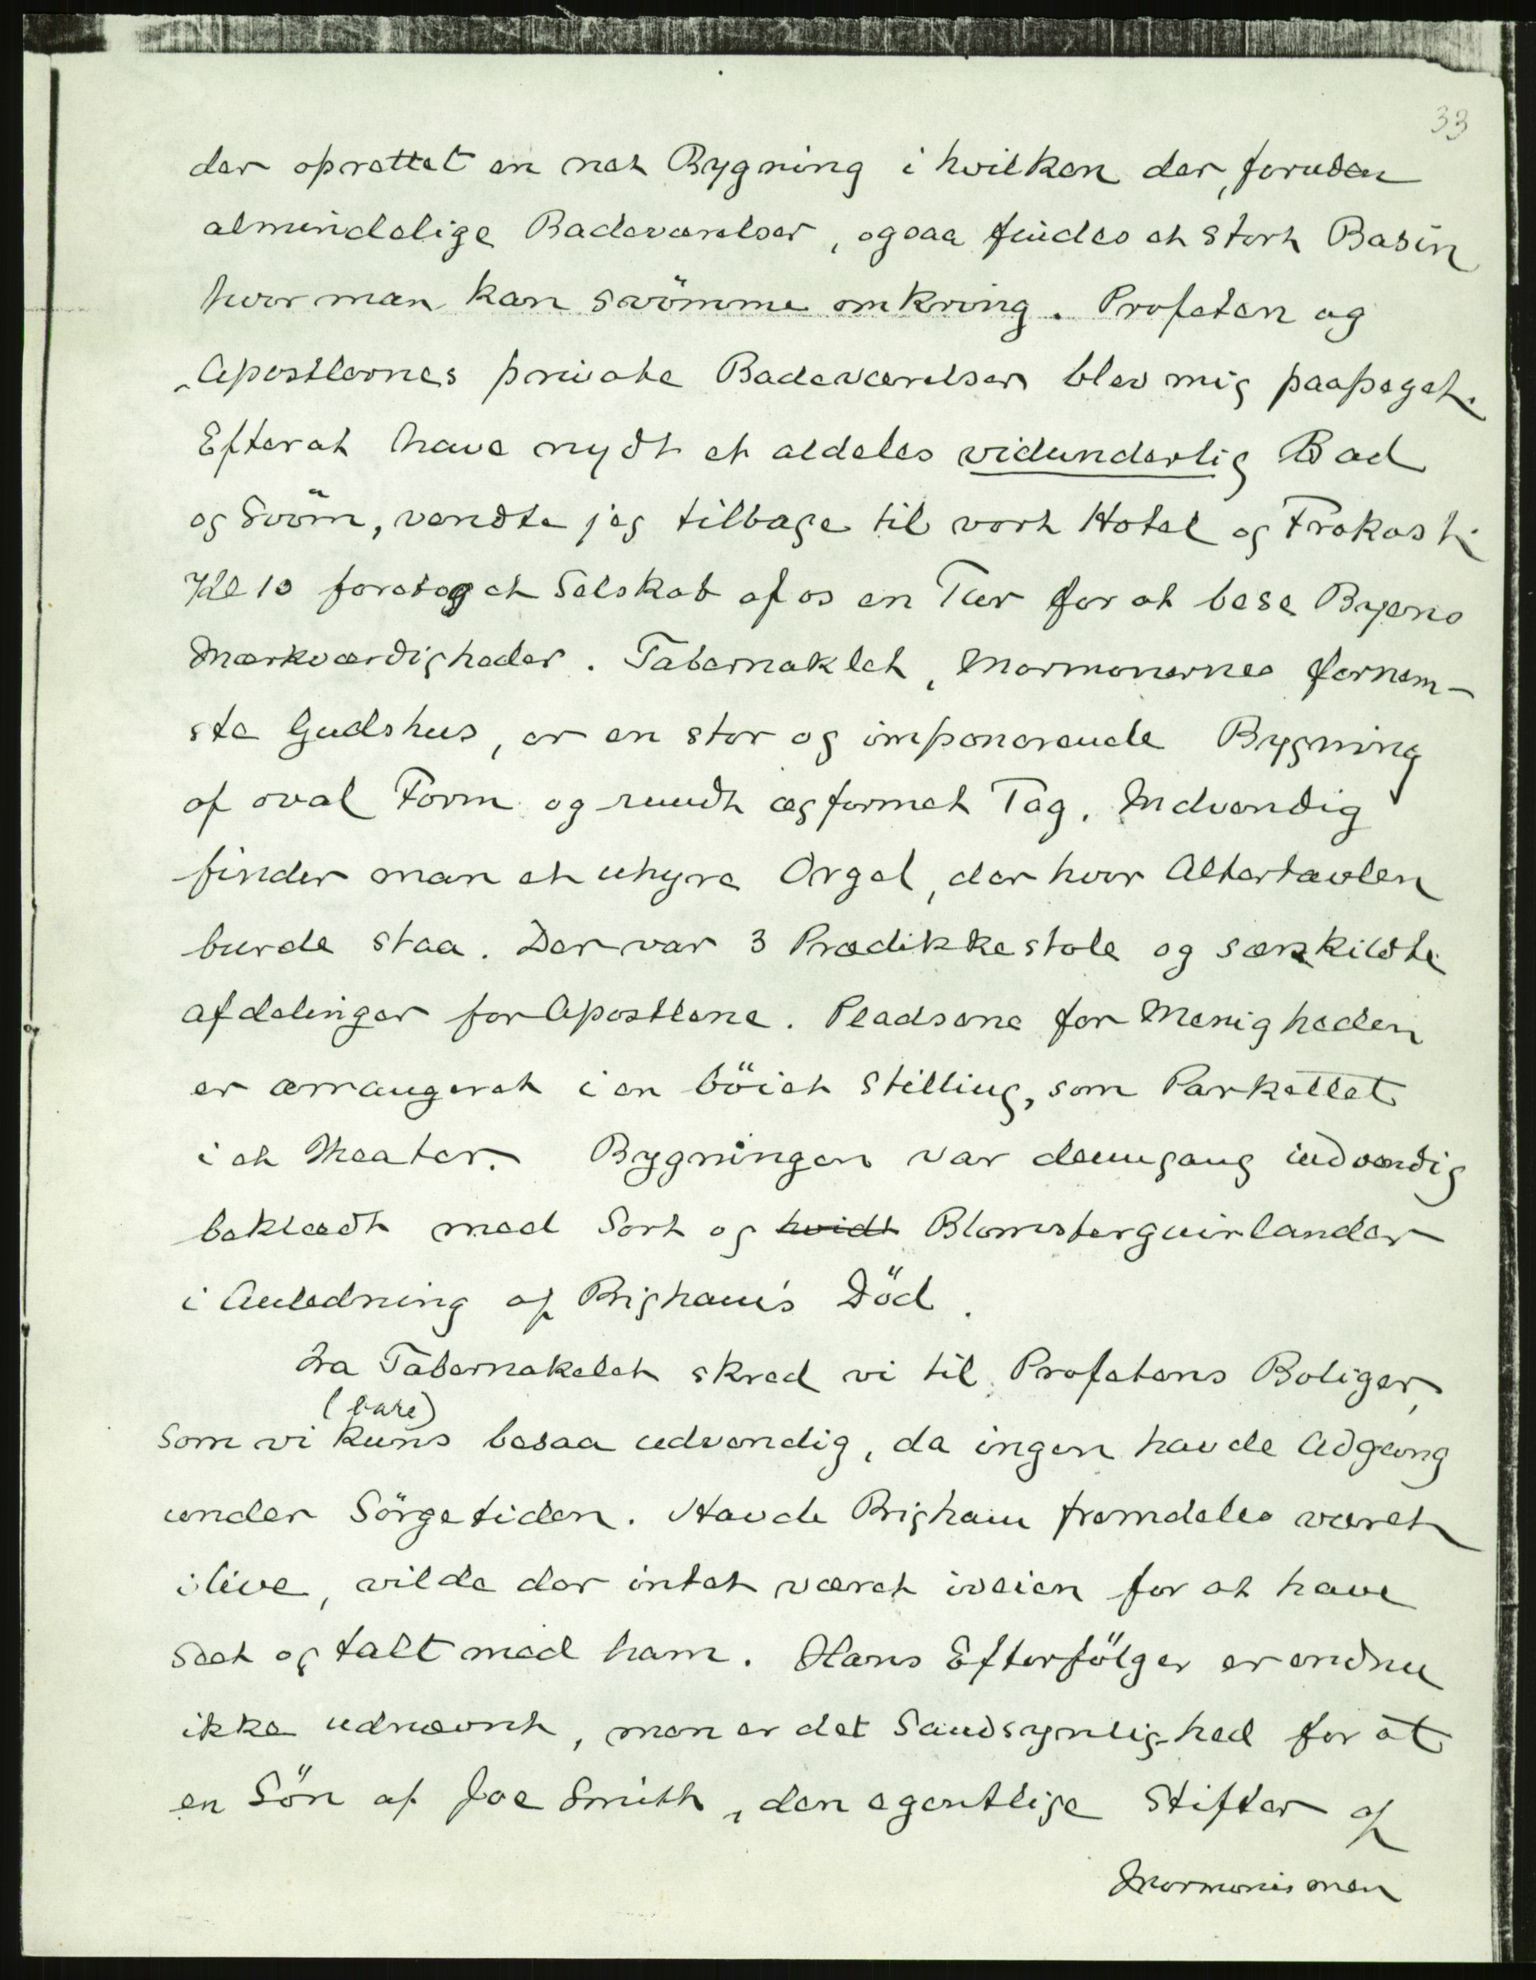 33
der oprettet en net Bygning i hvilken der, foruden
almindelige Badeværelser, ogsaa findes et stort Basin
hvor man kan svömme omkring. Profeten og
Apostlernes private Badeværelser blev mig paapeget.
Efterat have nydt et aldeles vidunderlig Bad
og Svöm, vendte jeg tilbage til vort Hotel og Frokost.
Kl 10 foretog et Selskab af os en Tur for at bese Byens
Mærkværdigheder. Tabernaklet, Mormonernes fornem-
ste Gudshus, er en stor og imponerende Bygning
af oval Form og rundt ægformet Tag. Indvendig
finder man et uhyre Orgel, der hvor Altertavlen
burde staa. Der var 3 Prædikkestole og særskildte
afdelinger for Apostlene. Pladsene for Menigheden
er arrangeret i en böiet Stilling, som Parkettet
i et Theater. Bygningen var dengang indvendig
beklædt med Sort og hvidt Blomsterguirlander
i Anledning af Brigham's Död.
Fra Tabernakelet skred vi til Profetens Boliger,
(bare)
som vi kuns besaa udvendig, da ingen havde Adgang
under Sörgetiden. Havde Brigham fremdeles været
ilive, vilde der intet været iveien for at have
seet og talt med ham. Hans Efterfölger er endnu
ikke udnævnt, men er det Sandsynlighed for at
en Sön af Joe Smith, den egentlige Stifter af
Mormonismen